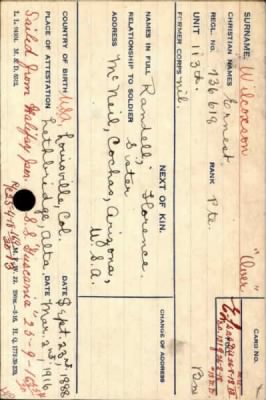 SURNAME. Wilcoxson "Over"
CARD NO.
CHRISTIAN NAMES Ernest
REGL. NO. 736618 RANK Pte.
UNIT 113th.
FORMER CORPS nil.
NEXT OF KIN.
CHANGE OF ADDRESS
NAMES IN FULL Randell, Florence.
RELATIONSHIP TO SOLDIER Sister
ADDRESS McNeil, Cochas, Arizona,
U.S.A.
COUNTRY OF BIRTH USA Louisville, Col. DATE Sept. 23rd 1888
PLACE OF ATTESTATION Lethbridge, Alta. DATE Mar. 2nd 1916
Sailed from Halifax per S.S. Tuscania 25-9-16